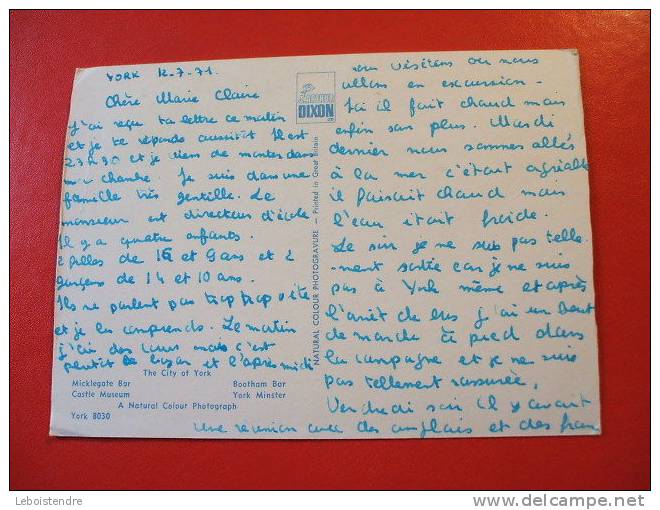 YORK 12-7-71.
Chère Marie Claire
J'ai reçu ta lettre ce matin
et je te réponds aussitôt Il est
23h30 et je viens de monter dans
ma chambre. Je suis dans une
famille très gentille. Le
monsieur est directeur d'école
Il y a quatre enfants.
2 filles de et 9 ans et 2
garçons de 14 et 10 ans.
Ils ne parlent pas trop trop vite
et je les comprends. Le matin
j'ai des cours mais c'est
plutôt la et l'après midi
The City of York
Micklegate Bar Bootham Bar
Castle Museum York Minster
A Natural Colour Photograph
York 8030
ARTHUR
DIXON
NATURAL COLOUR PHOTOGRAVURE — Printed in Great Britain
visitons ou nous
allons en excursion -
Ici il fait chaud mais
enfin sans plus. Mardi
dernier nous sommes allés
à la mer c'était agréable
il faisait chaud mais
l'eau était froide.
Le soir je ne suis pas telle
-ment sortie car je ne suis
pas à York même et après
l'arrêt de bus j'ai un bout
de marche à pied dans
la campagne et je ne suis
pas tellement rassurée.
Vendredi soir il y avait
une réunion avec des anglais et des fran
Leboistendre
www.delcampe.net